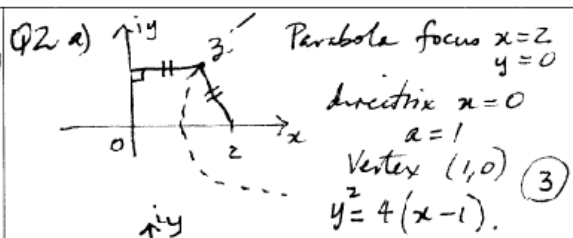 Q2 a) iy
z
Parabola focus x=2
y=0
directrix x=0
a=1
Vertex (1,0)
3
y²=4(x-1).
0 2 x
iy